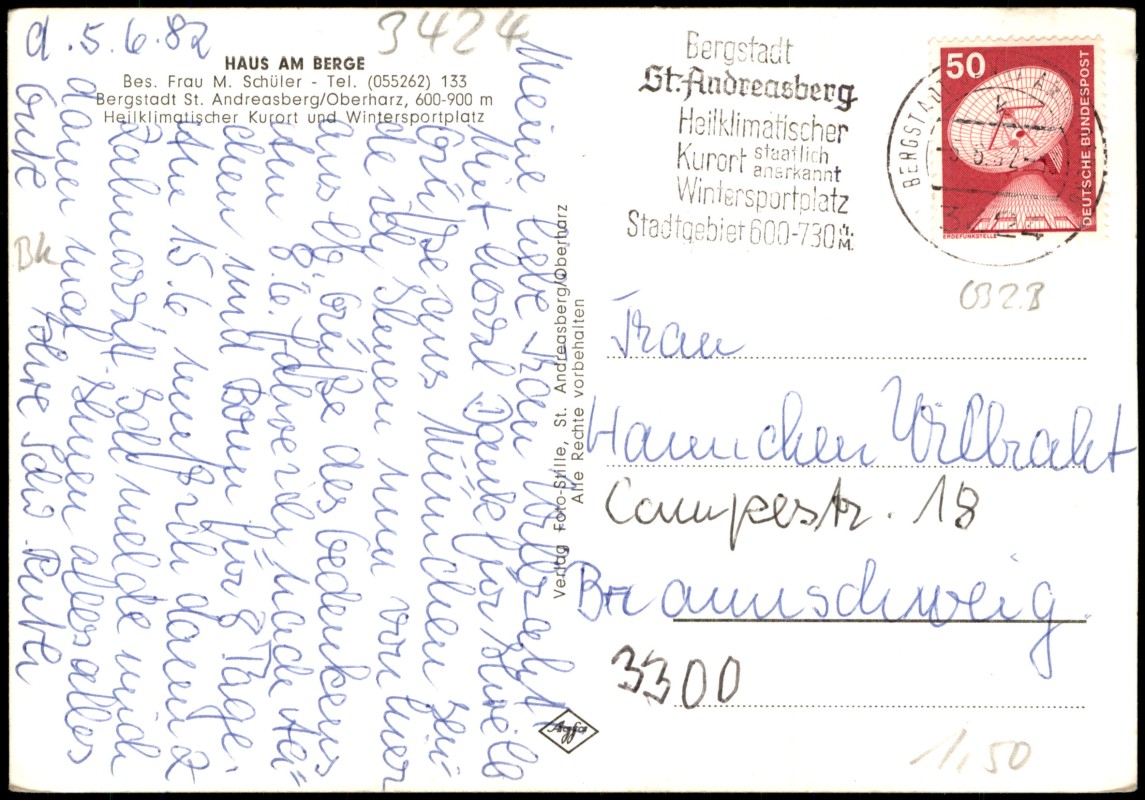 d. 5.6.82
3424
HAUS AM BERGE
Bes. Frau M. Schüler - Tel. (055262) 133
Bergstadt St. Andreasberg/Oberharz, 600-900 m
Heilklimatischer Kurort und Wintersportplatz
Meine liebe Frau Vilbraht.
Mit Dank für Ihre
Grüße aus München sen-
de ich Ihnen nun von hier
aus Grüße des Gedenkens
Am 8.6. fahre ich nach
chen und Bonn für 8 Tage.
Am 15.6 muß ich dann z
Zahnarzt. Ich melde mich
dann mal. Ihnen alles alles
Gute Ihre
Bk
Verlag Foto-Stille, St. Andreasberg/Oberharz
Alle Rechte vorbehalten
Agfa
Bergstadt
St. Andreasberg
Heilklimatischer
Kurort staatlich anerkannt
Wintersportplatz
Stadtgebiet 600-730 ü. M.
50
DEUTSCHE BUNDESPOST
ERDEFUNKSTELLE
BERGSTADT
3424
Frau
Hannchen Vilbraht
Campestr. 18
Braunschweig.
3300
1,50